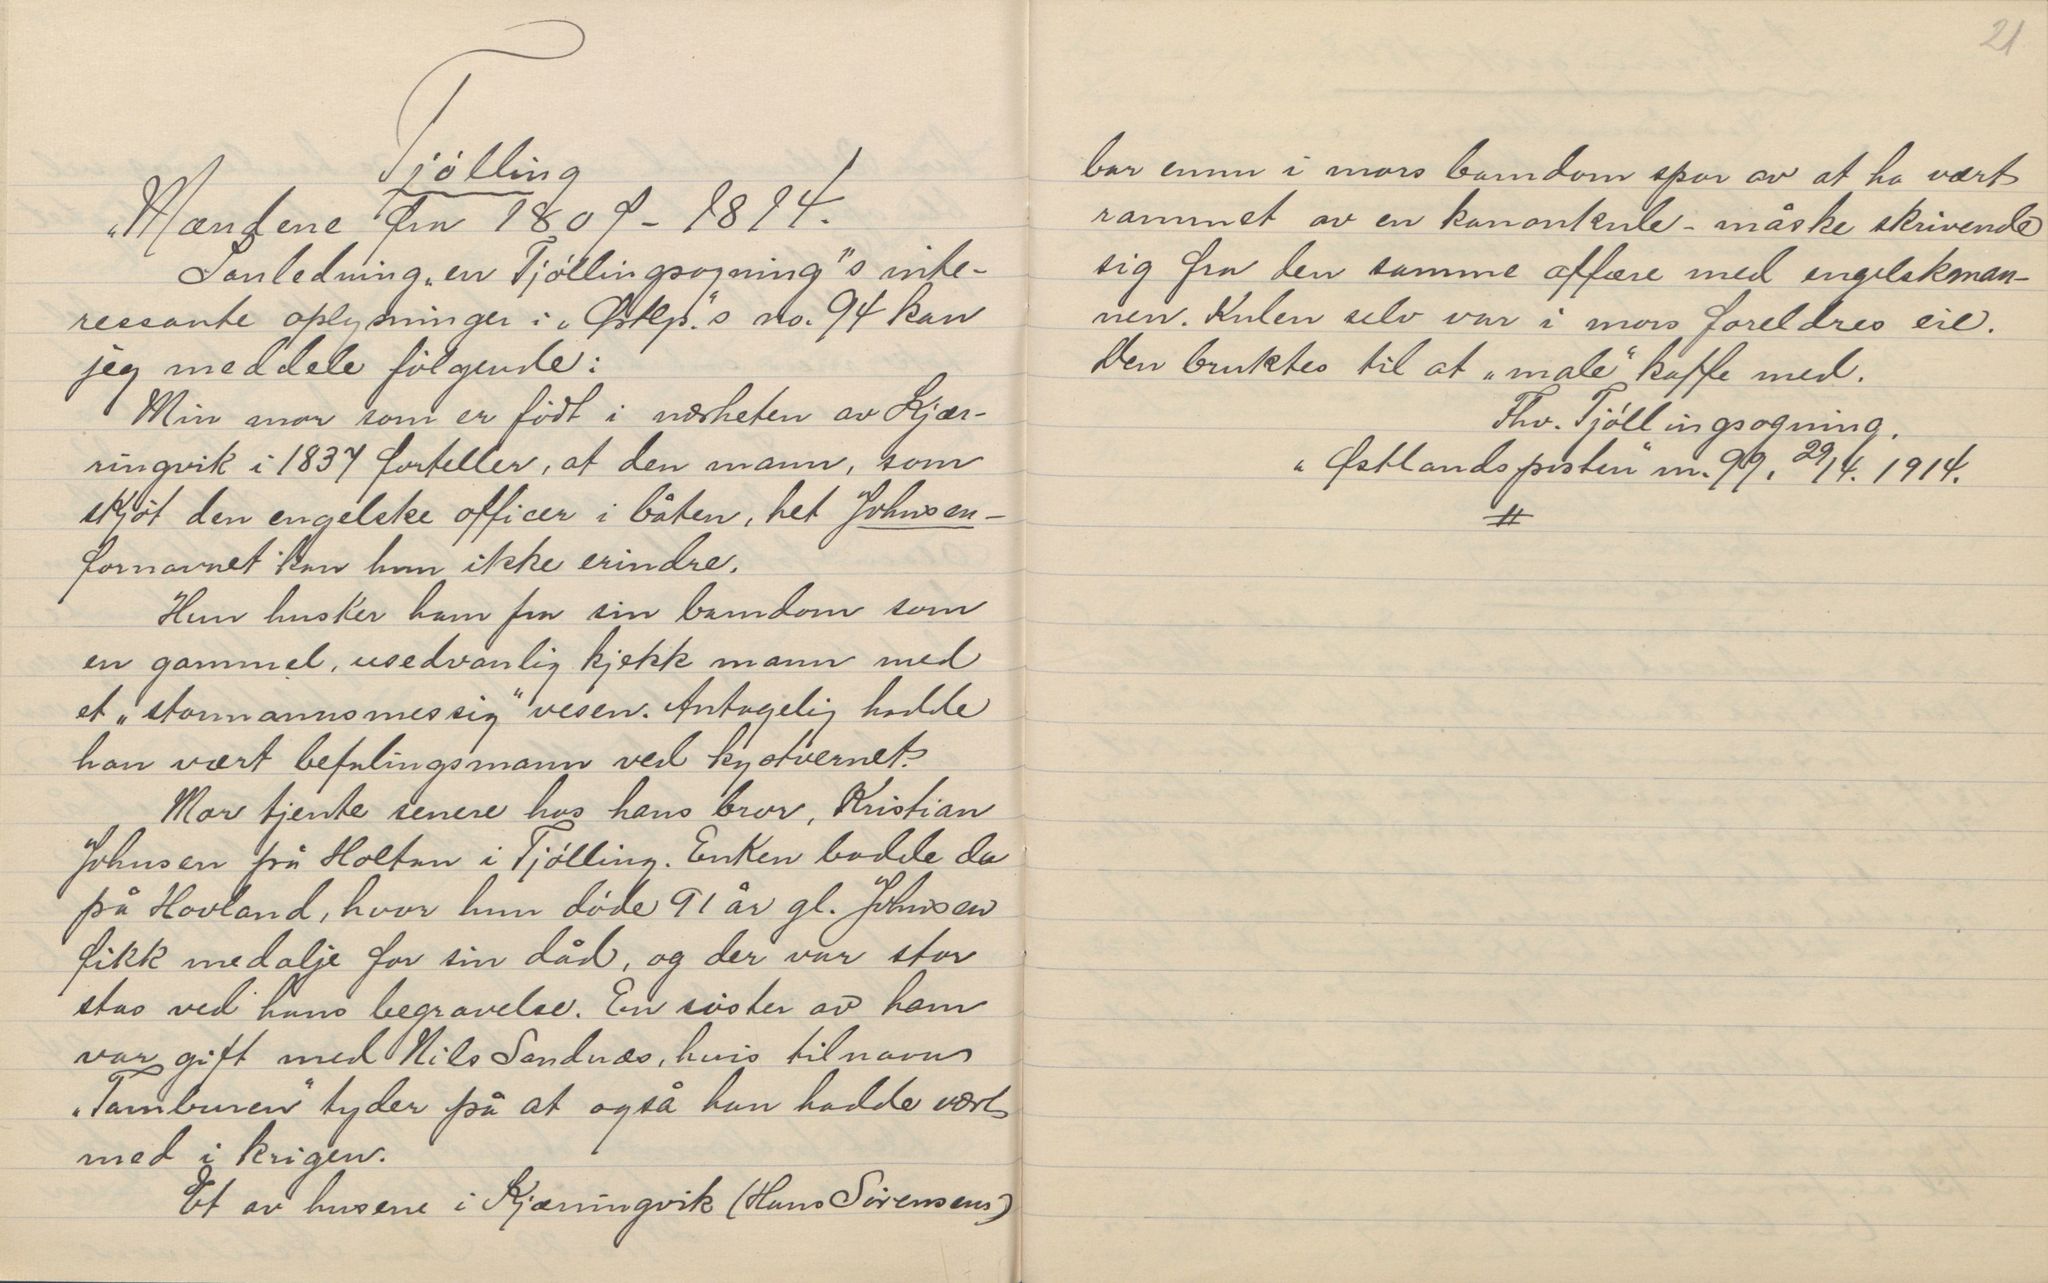 Tjölling
„Mændene fra 1807 - 1814.
I anledning „en Tjöllingsogning"s inte-
ressante oplysninger i „Østlp."s no. 94 kan
jeg meddele fölgende:
Min mor som er födt i nærheten av Kjær-
ringvik i 1837 forteller, at den mann, som
skjöt den engelske officer i båten, het Johnsen -
fornavnet kan hun ikke erindre.
Hun husker ham fra sin barndom som
en gammel, usedvanlig kjekk mann med
et „stormannsmessig" vesen. Antagelig hadde
han vært befalingsmann ved kystvernet.
Mor tjente senere hos hans bror, Kristian
Johnsen på Holtan i Tjölling. Enken bodde da
på Hovland, hvor hun döde 91 år gl. Johnsen
fikk medalje for sin dåd, og der var stor
stas ved hans begravelse. En söster av ham
var gift med Nils Sandnæs, hvis tilnavn
„Tamburen" tyder på at også han hadde vært
med i krigen.
Et av husene i Kjærringvik (Hans Sörensens)
21
bar ennu i mors barndom spor av at ha vært
rammet av en kanonkule - måske skrivende
sig fra den samme affære med engelskman-
nen. Kulen selv var i mors foreldres eie.
Den bruktes til at „male" kaffe med.
Thv. Tjöllingsogning.
„Østlandsposten" nr. 99, 29/4. 1914.